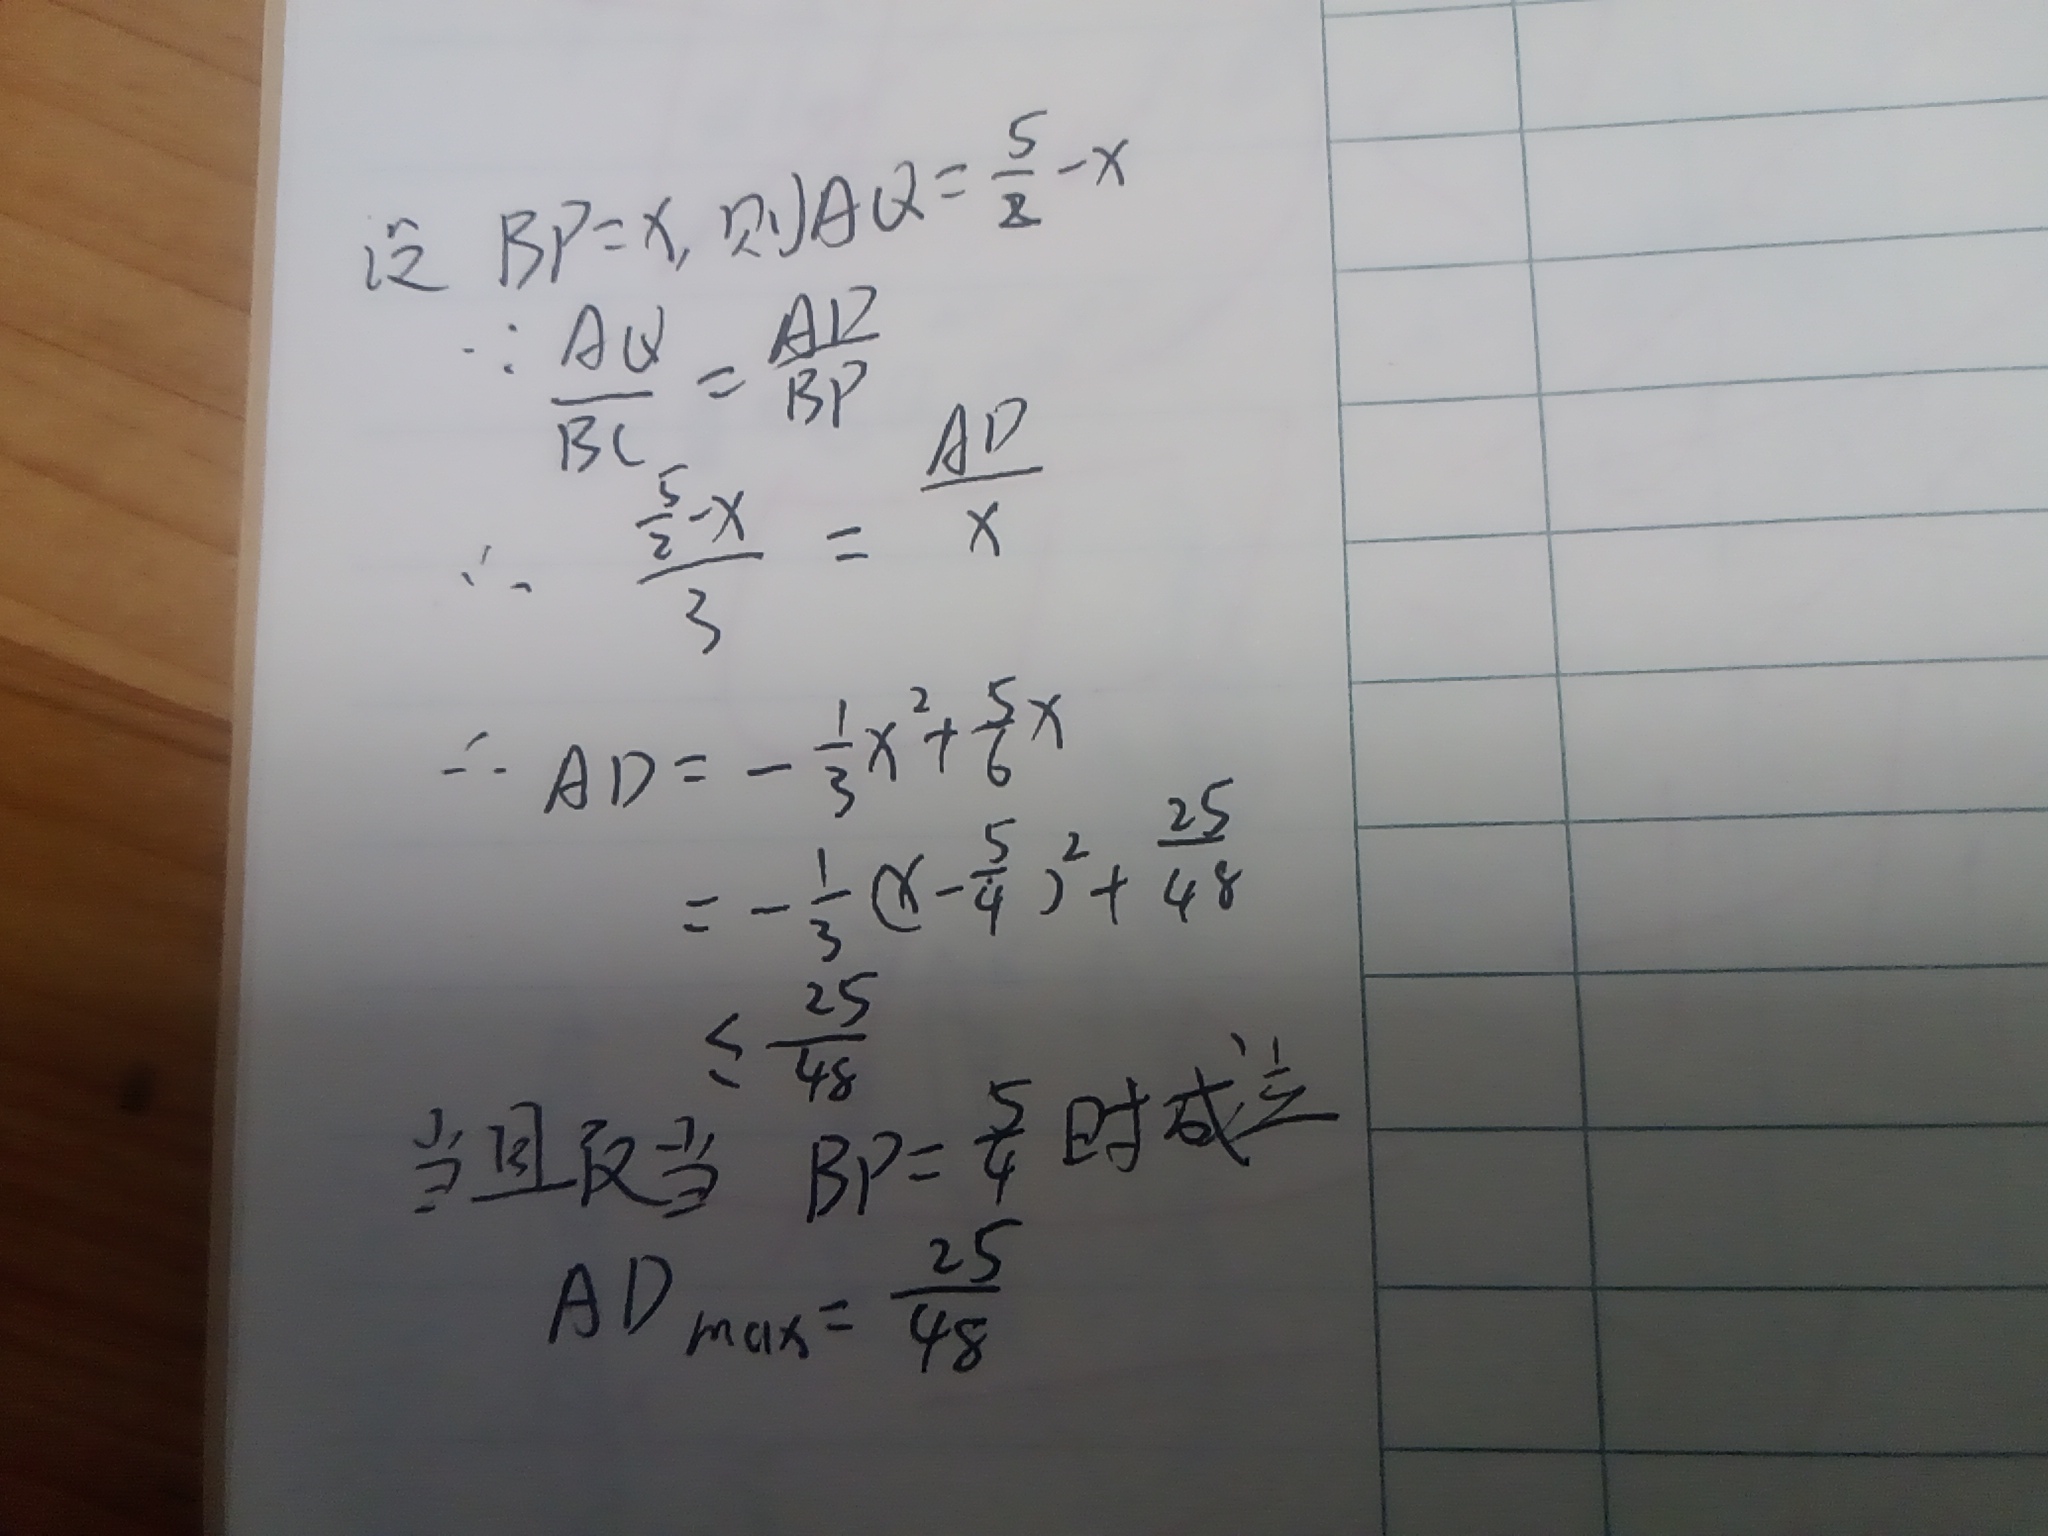 设 BP=x, 则AQ=5/2-x
∵ AQ/BC = AD/BP
∴ (5/2-x)/3 = AD/x
∴ AD=-1/3x²+5/6x
=-1/3(x-5/4)²+25/48
≤25/48
当且仅当 BP=5/4时成立
ADmax=25/48